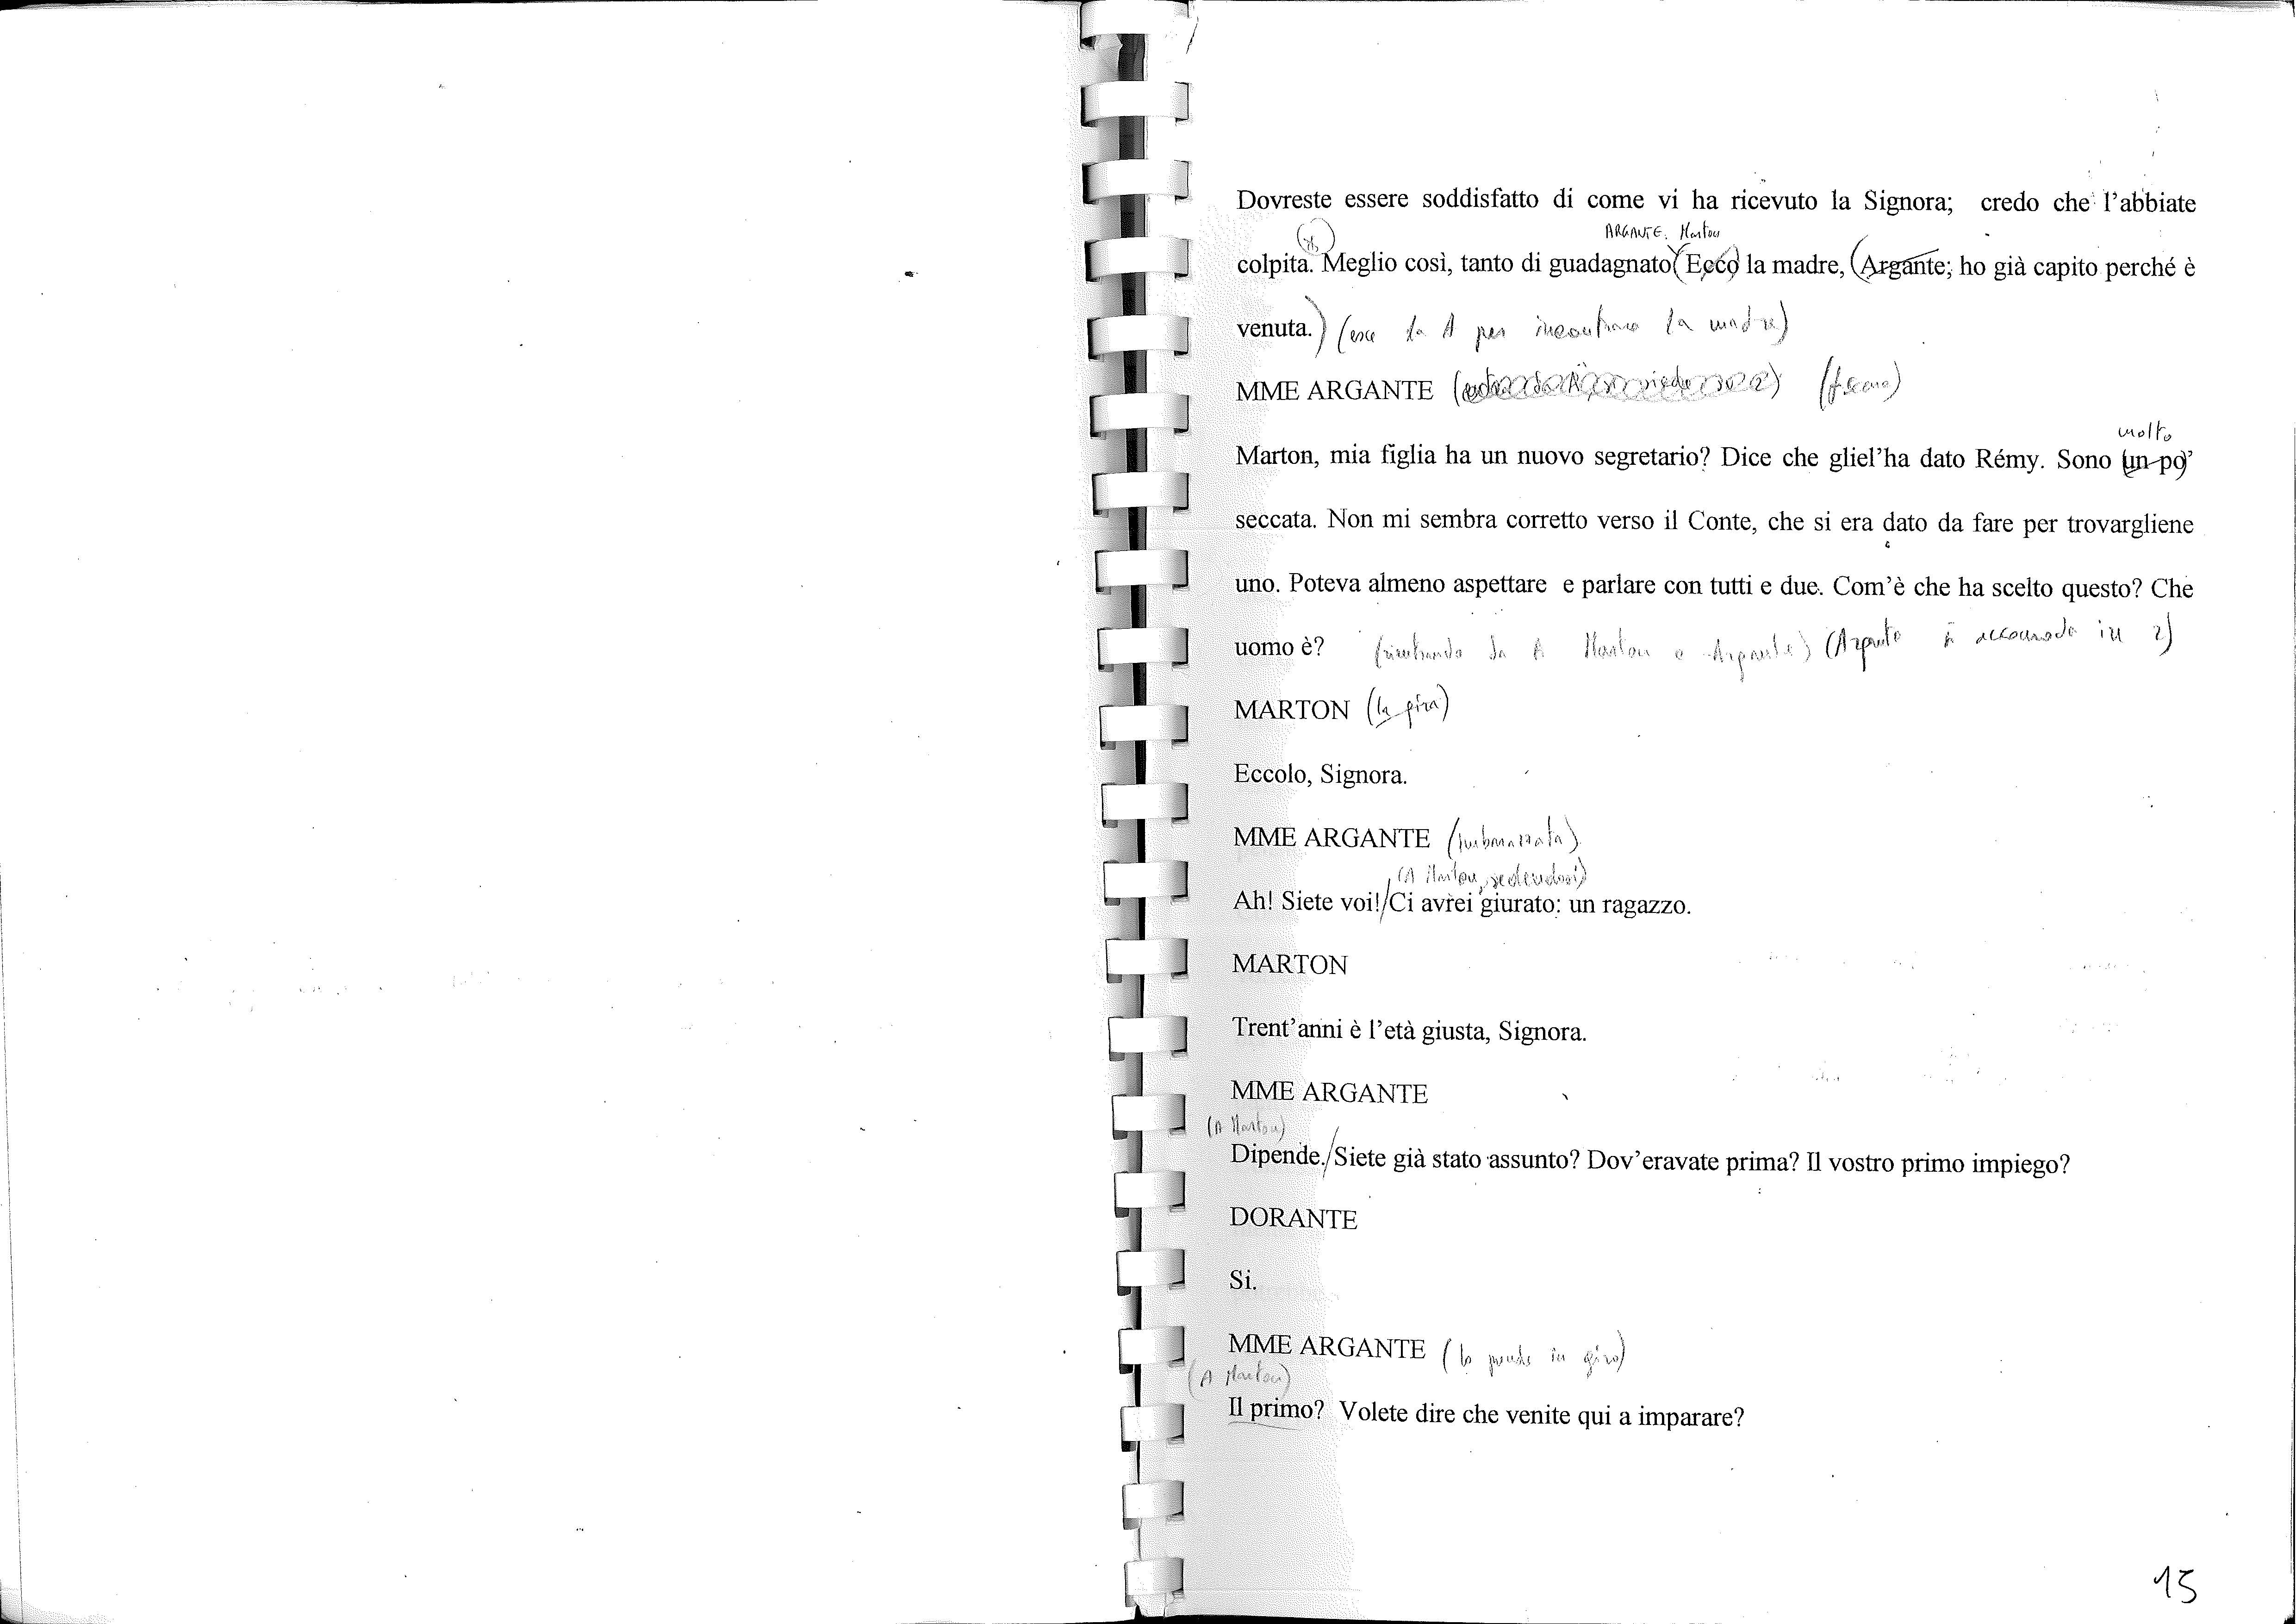 Dovreste essere soddisfatto di come vi ha ricevuto la Signora; credo che l'abbiate
ARGANTE. Marton
colpita. Meglio così, tanto di guadagnato (Ecco) la madre, (Argante; ho già capito perché è
venuta.) (esce da A per incontrare la madre)
MME ARGANTE (f. scena)
molto
Marton, mia figlia ha un nuovo segretario? Dice che gliel'ha dato Rémy. Sono (un po)'
seccata. Non mi sembra corretto verso il Conte, che si era dato da fare per trovargliene
uno. Poteva almeno aspettare e parlare con tutti e due. Com'è che ha scelto questo? Che
uomo è? (rientrando da A Marton e Argante) (Argante si accomoda in 2)
MARTON (la gira)
Eccolo, Signora.
MME ARGANTE (imbarazzata)
(A Marton, sedendosi)
Ah! Siete voi!/Ci avrei giurato: un ragazzo.
MARTON
Trent'anni è l'età giusta, Signora.
MME ARGANTE
(A Marton)
Dipende./Siete già stato assunto? Dov'eravate prima? Il vostro primo impiego?
DORANTE
Si.
MME ARGANTE (lo prende in giro)
(A Marton)
Il primo? Volete dire che venite qui a imparare?
15